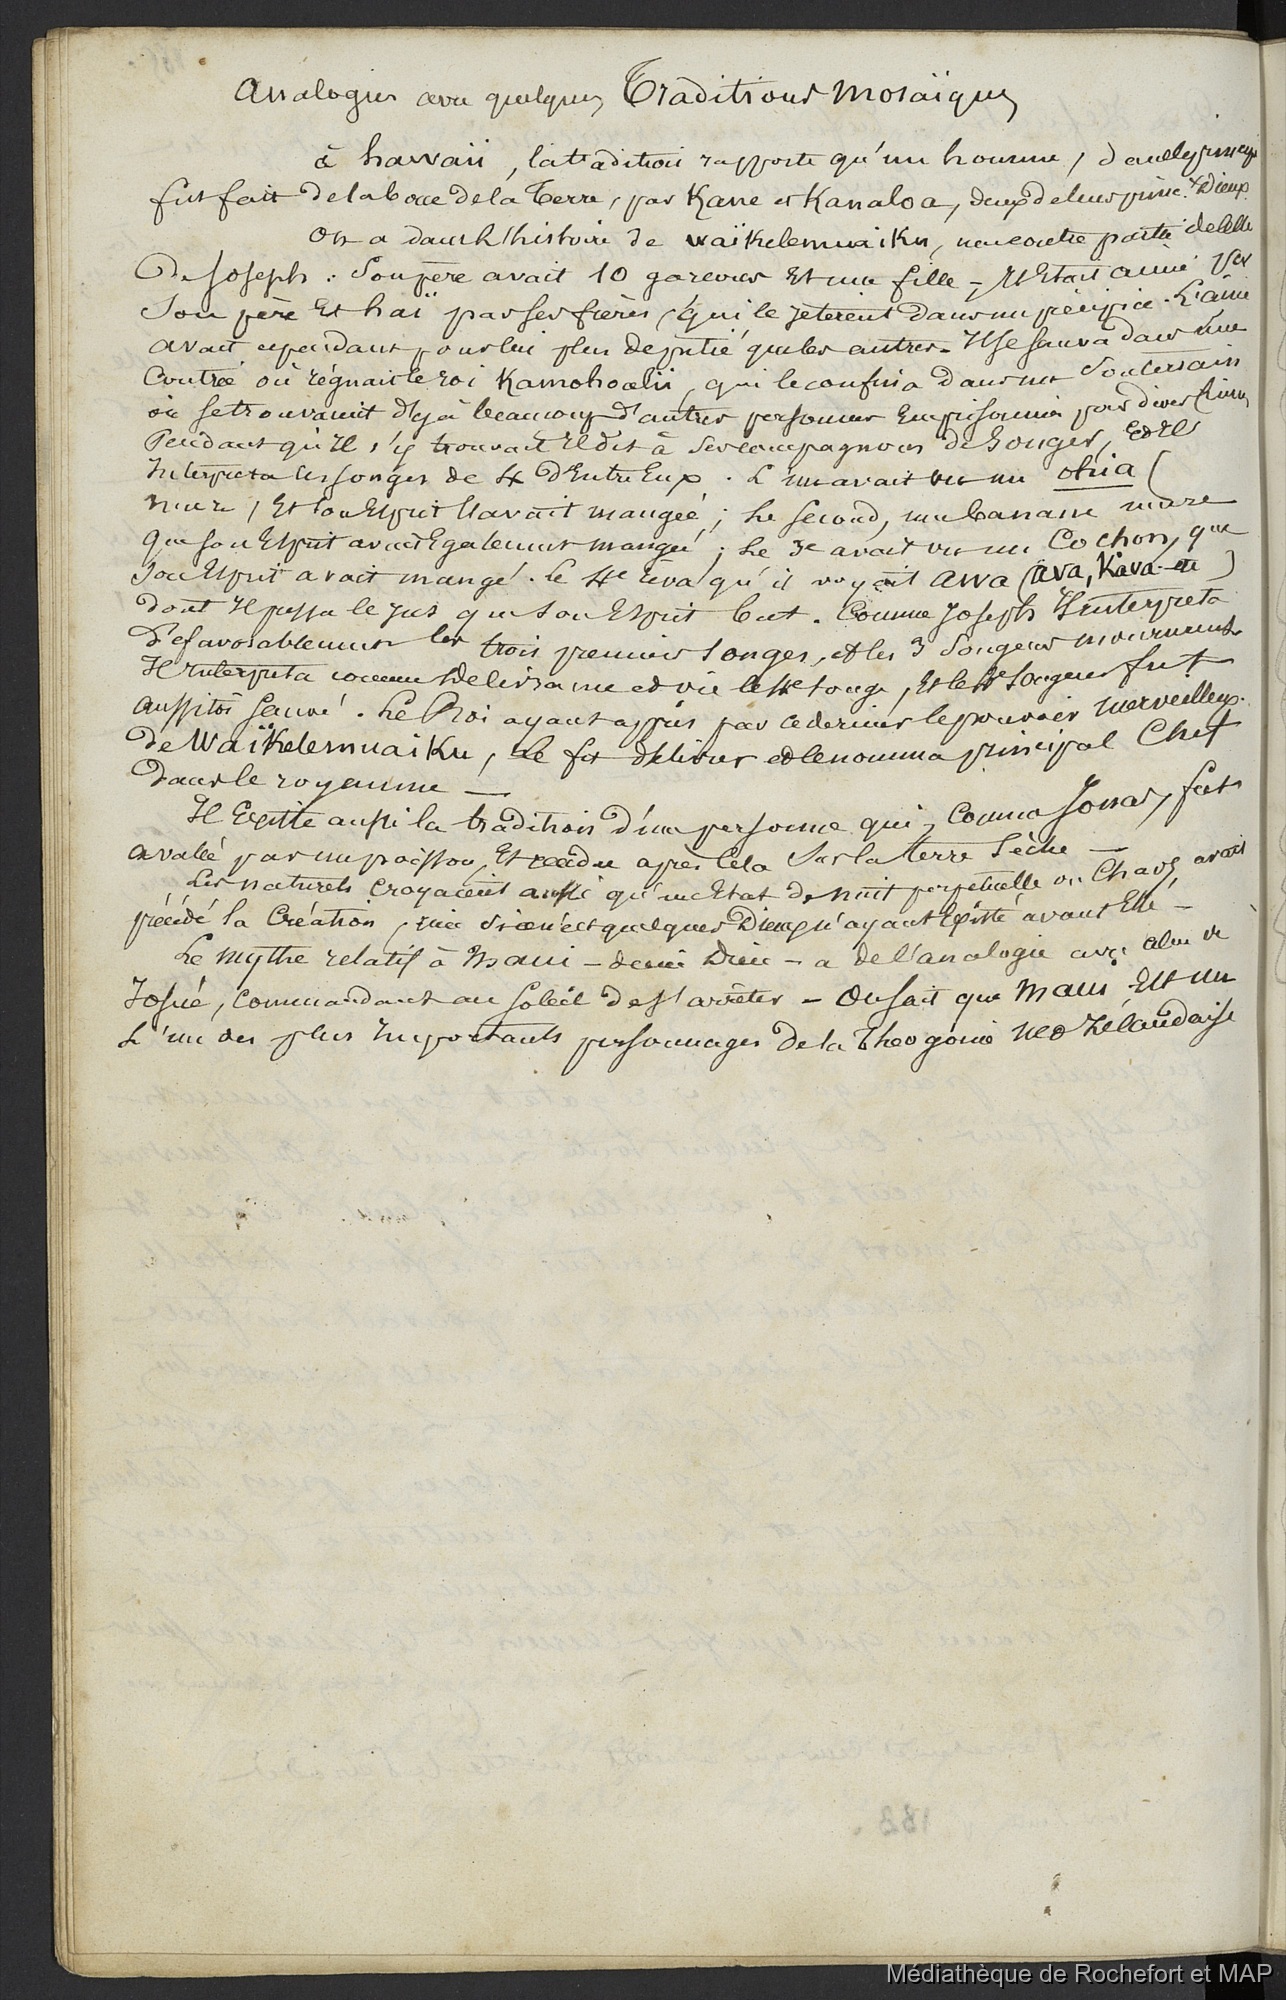 Analogies avec quelques Traditions Mosaïques
à hawaii, la tradition rapporte qu'un homme, dans le principe
fut fait de la boue de la Terre, par Kane et Kanaloa, deux de leurs princ. Dieux.
On a dans l'histoire de Waïkelenuaiku, une contre partie de celle
De Joseph : Son père avait 10 garcons Et une fille - Il Etait aimé par
Son père Et haï par ses frères, qui le jeterent dans un précipice. L'ainé
avait cependant pour lui plus de pitié que les autres. Il se sauva dans une
Contrée où régnait le roi Kamohoalii, qui le confina dans un Souterrain
où se trouvaient déjà beaucoup d'autres personnes Emprisonnées pour divers Crimes
Pendant qu'Il s'y trouvait Il dit à ses compagnons de Songer, Et Il
Interpreta les songes de 4 d'Entre Eux. L'un avait vu un ohia (
mure, Et son Esprit l'avait mangée ; Le second, une banane mure
que son Esprit avait Egalement mangée ; Le 3e avait vu un Cochon, que
son Esprit avait mangé. Le 4e rêva qu'il voyait awa (ava, Kava
dont Il pressa le jus que son Esprit but. Comme Joseph Il interpreta
Défavorablement les trois premiers songes, et les 3 Songeurs moururent.
Il interpreta comme délivrance et vie le 4e songe, Et le 4e Songeur fut
aussitôt sauvé. Le Roi ayant appris par ce dernier le pouvoir merveilleux
de Waïkelenuaiku, le fit délivrer et le nomma principal Chef
dans le royaume —
Il Existe aussi la tradition d'une personne qui, Comme Jonas, fut
avalée par un poisson, Et rendue après Cela Sur la Terre Sèche —
Les naturels croyaient aussi qu'un Etat de nuit perpetuelle ou Chaos, avait
précédé la Création, rien si ce n'est quelques Dieux n'ayant Existé avant Elle —
Le mythe relatif à Maui - demi Dieu - a de l'analogie avec celui de
Josué, Commandant au Soleil de s'arrêter - On sait que Maui Est un
L'un des plus Importants personnages de la Théogonie Neo Zélandaise
183.
Médiathèque de Rochefort et MAP